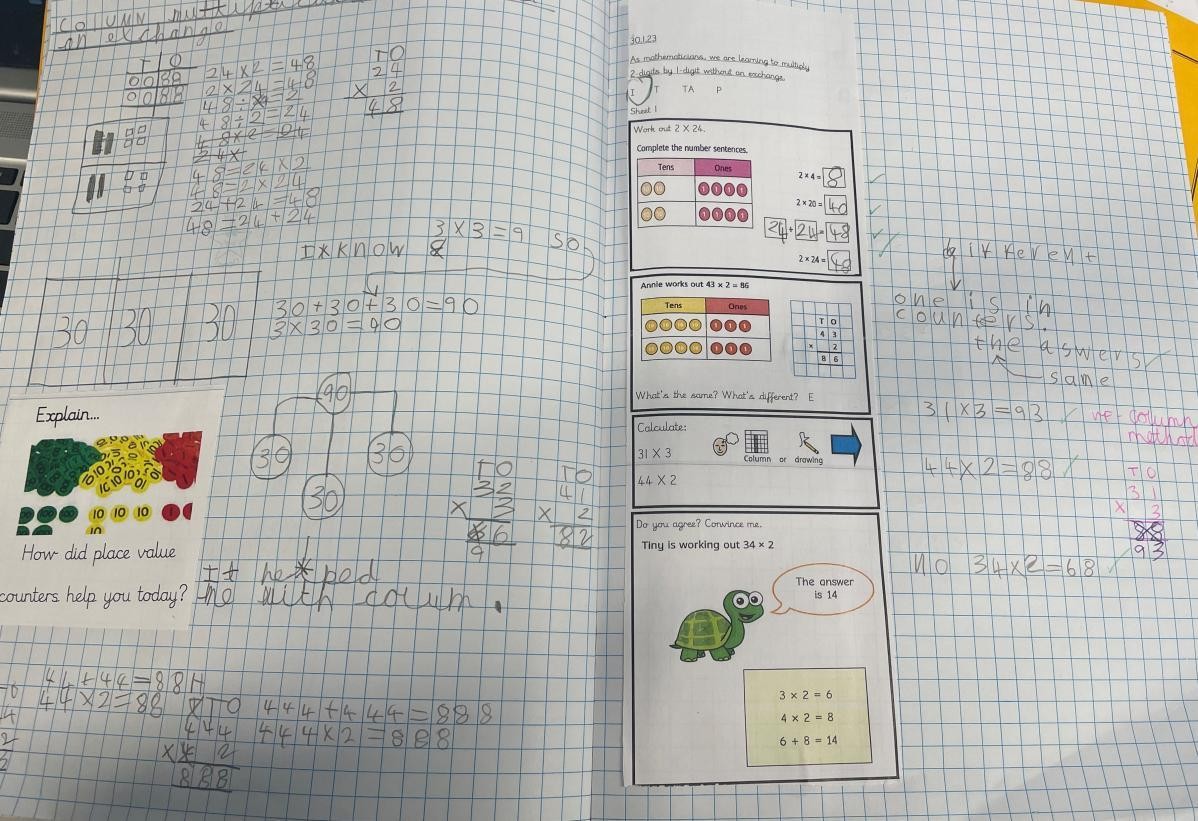 COLUMN
an exchange
T O
00 88
00 88
24 x 2 = 48
2 x 24 = 48
48 ÷ 2 = 24
48 = 24 x 2
48 = 2 x 24
24 + 24 = 48
48 = 24 + 24
TO
24
x 2
48
I KNOW 3 x 3 = 9 so
30 30 30
30 + 30 + 30 = 90
3 x 30 = 90
90
30 30
30
Explain...
10 10 10
10
How did place value
counters help you today?
It helped
me with colum.
TO
32
x 3
9 6
TO
41
x 2
82
44 + 44 = 88
44 x 2 = 88
HTO
444
x 2
888
444 + 444 = 888
444 x 2 = 888
30.1.23
As mathematicians, we are learning to multiply
2-digits by 1-digit without an exchange.
I T TA P
Sheet 1
Work out 2 X 24.
Complete the number sentences.
Tens Ones
2 x 4 = 8
2 x 20 = 40
24 + 24 = 48
2 x 24 = 48
Annie works out 43 x 2 = 86
Tens Ones
10 10 10 10 1 1 1
10 10 10 10 1 1 1
T O
4 3
x 2
8 6
What's the same? What's different? E
Calculate:
31 X 3
44 X 2
Column or drawing
Do you agree? Convince me.
Tiny is working out 34 x 2
The answer
is 14
3 x 2 = 6
4 x 2 = 8
6 + 8 = 14
different
one is in
counters.
the aswers
same
31 x 3 = 93
column
method
44 x 2 = 88
TO
31
x 3
93
NO 34 x 2 = 68